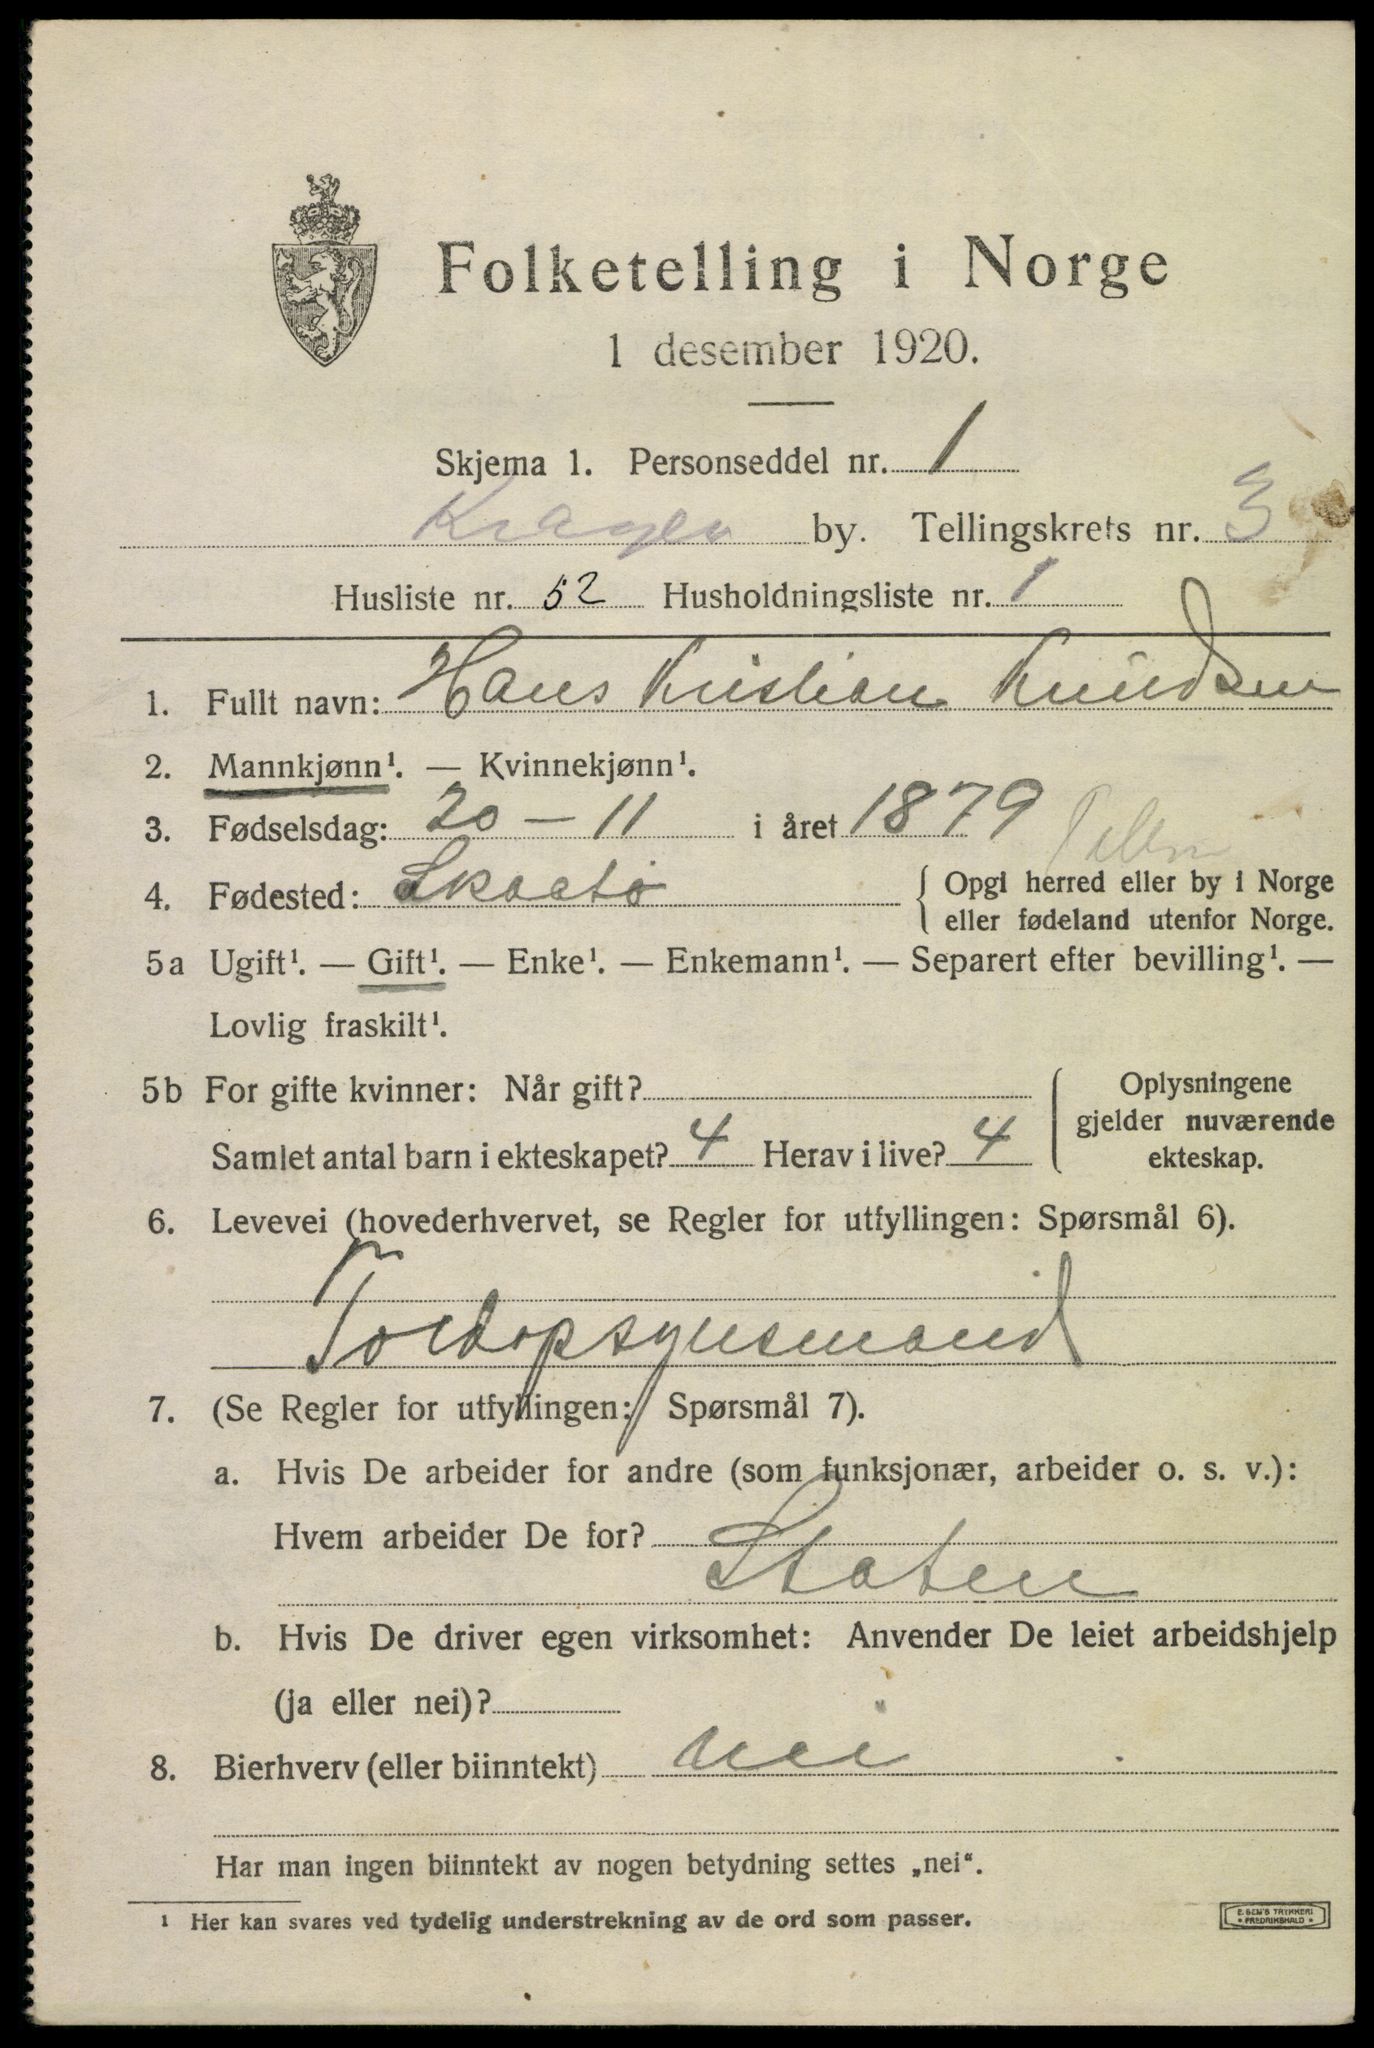 Folketelling i Norge
1 desember 1920.
Skjema 1. Personseddel nr. 1
Kragerø by. Tellingskrets nr. 3
Husliste nr. 52 Husholdningsliste nr. 1
1. Fullt navn: Hans Kristian Knudsen
2. Mannkjønn¹. — Kvinnekjønn¹.
3. Fødselsdag: 20 – 11 i året 1879
4. Fødested: Skaatø { Opgi herred eller by i Norge
eller fødeland utenfor Norge.
5a Ugift¹. — Gift¹. — Enke¹. — Enkemann¹. — Separert efter bevilling¹. —
Lovlig fraskilt¹.
5b For gifte kvinner: Når gift? Oplysningene
gjelder nuværende
Samlet antal barn i ekteskapet? 4 Herav i live? 4 ekteskap.
6. Levevei (hovederhvervet, se Regler for utfyllingen: Spørsmål 6).
Toldopsynsmand
7. (Se Regler for utfyllingen: Spørsmål 7).
a. Hvis De arbeider for andre (som funksjonær, arbeider o. s. v.):
Hvem arbeider De for?
Staten
b. Hvis De driver egen virksomhet: Anvender De leiet arbeidshjelp
(ja eller nei)?
8. Bierhverv (eller biinntekt) nei
Har man ingen biinntekt av nogen betydning settes „nei“.
¹ Her kan svares ved tydelig understrekning av de ord som passer.
E. SEM'S TRYKKERI
* FREDRIKSHALD *